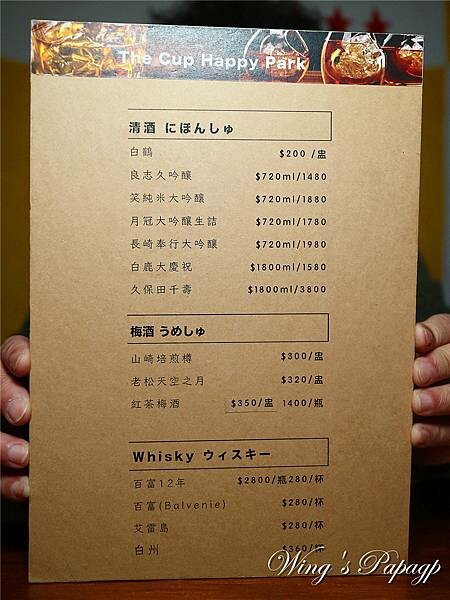 The Cup Happy Park
清酒 にほんしゅ
白鶴 $200 /盅
良志久吟釀 $720ml/1480
笑純米大吟釀 $720ml/1880
月冠大吟釀生詰 $720ml/1780
長崎奉行大吟釀 $720ml/1980
白鹿大慶祝 $1800ml/1580
久保田千壽 $1800ml/3800
梅酒 うめしゅ
山崎培煎樽 $300/盅
老松天空之月 $320/盅
紅茶梅酒 $350/盅 1400/瓶
Whisky ウィスキー
百富12年 $2800/瓶280/杯
百富(Balvenie) $280/杯
艾雷島 $280/杯
白州 $360/杯
Wing's Papagp